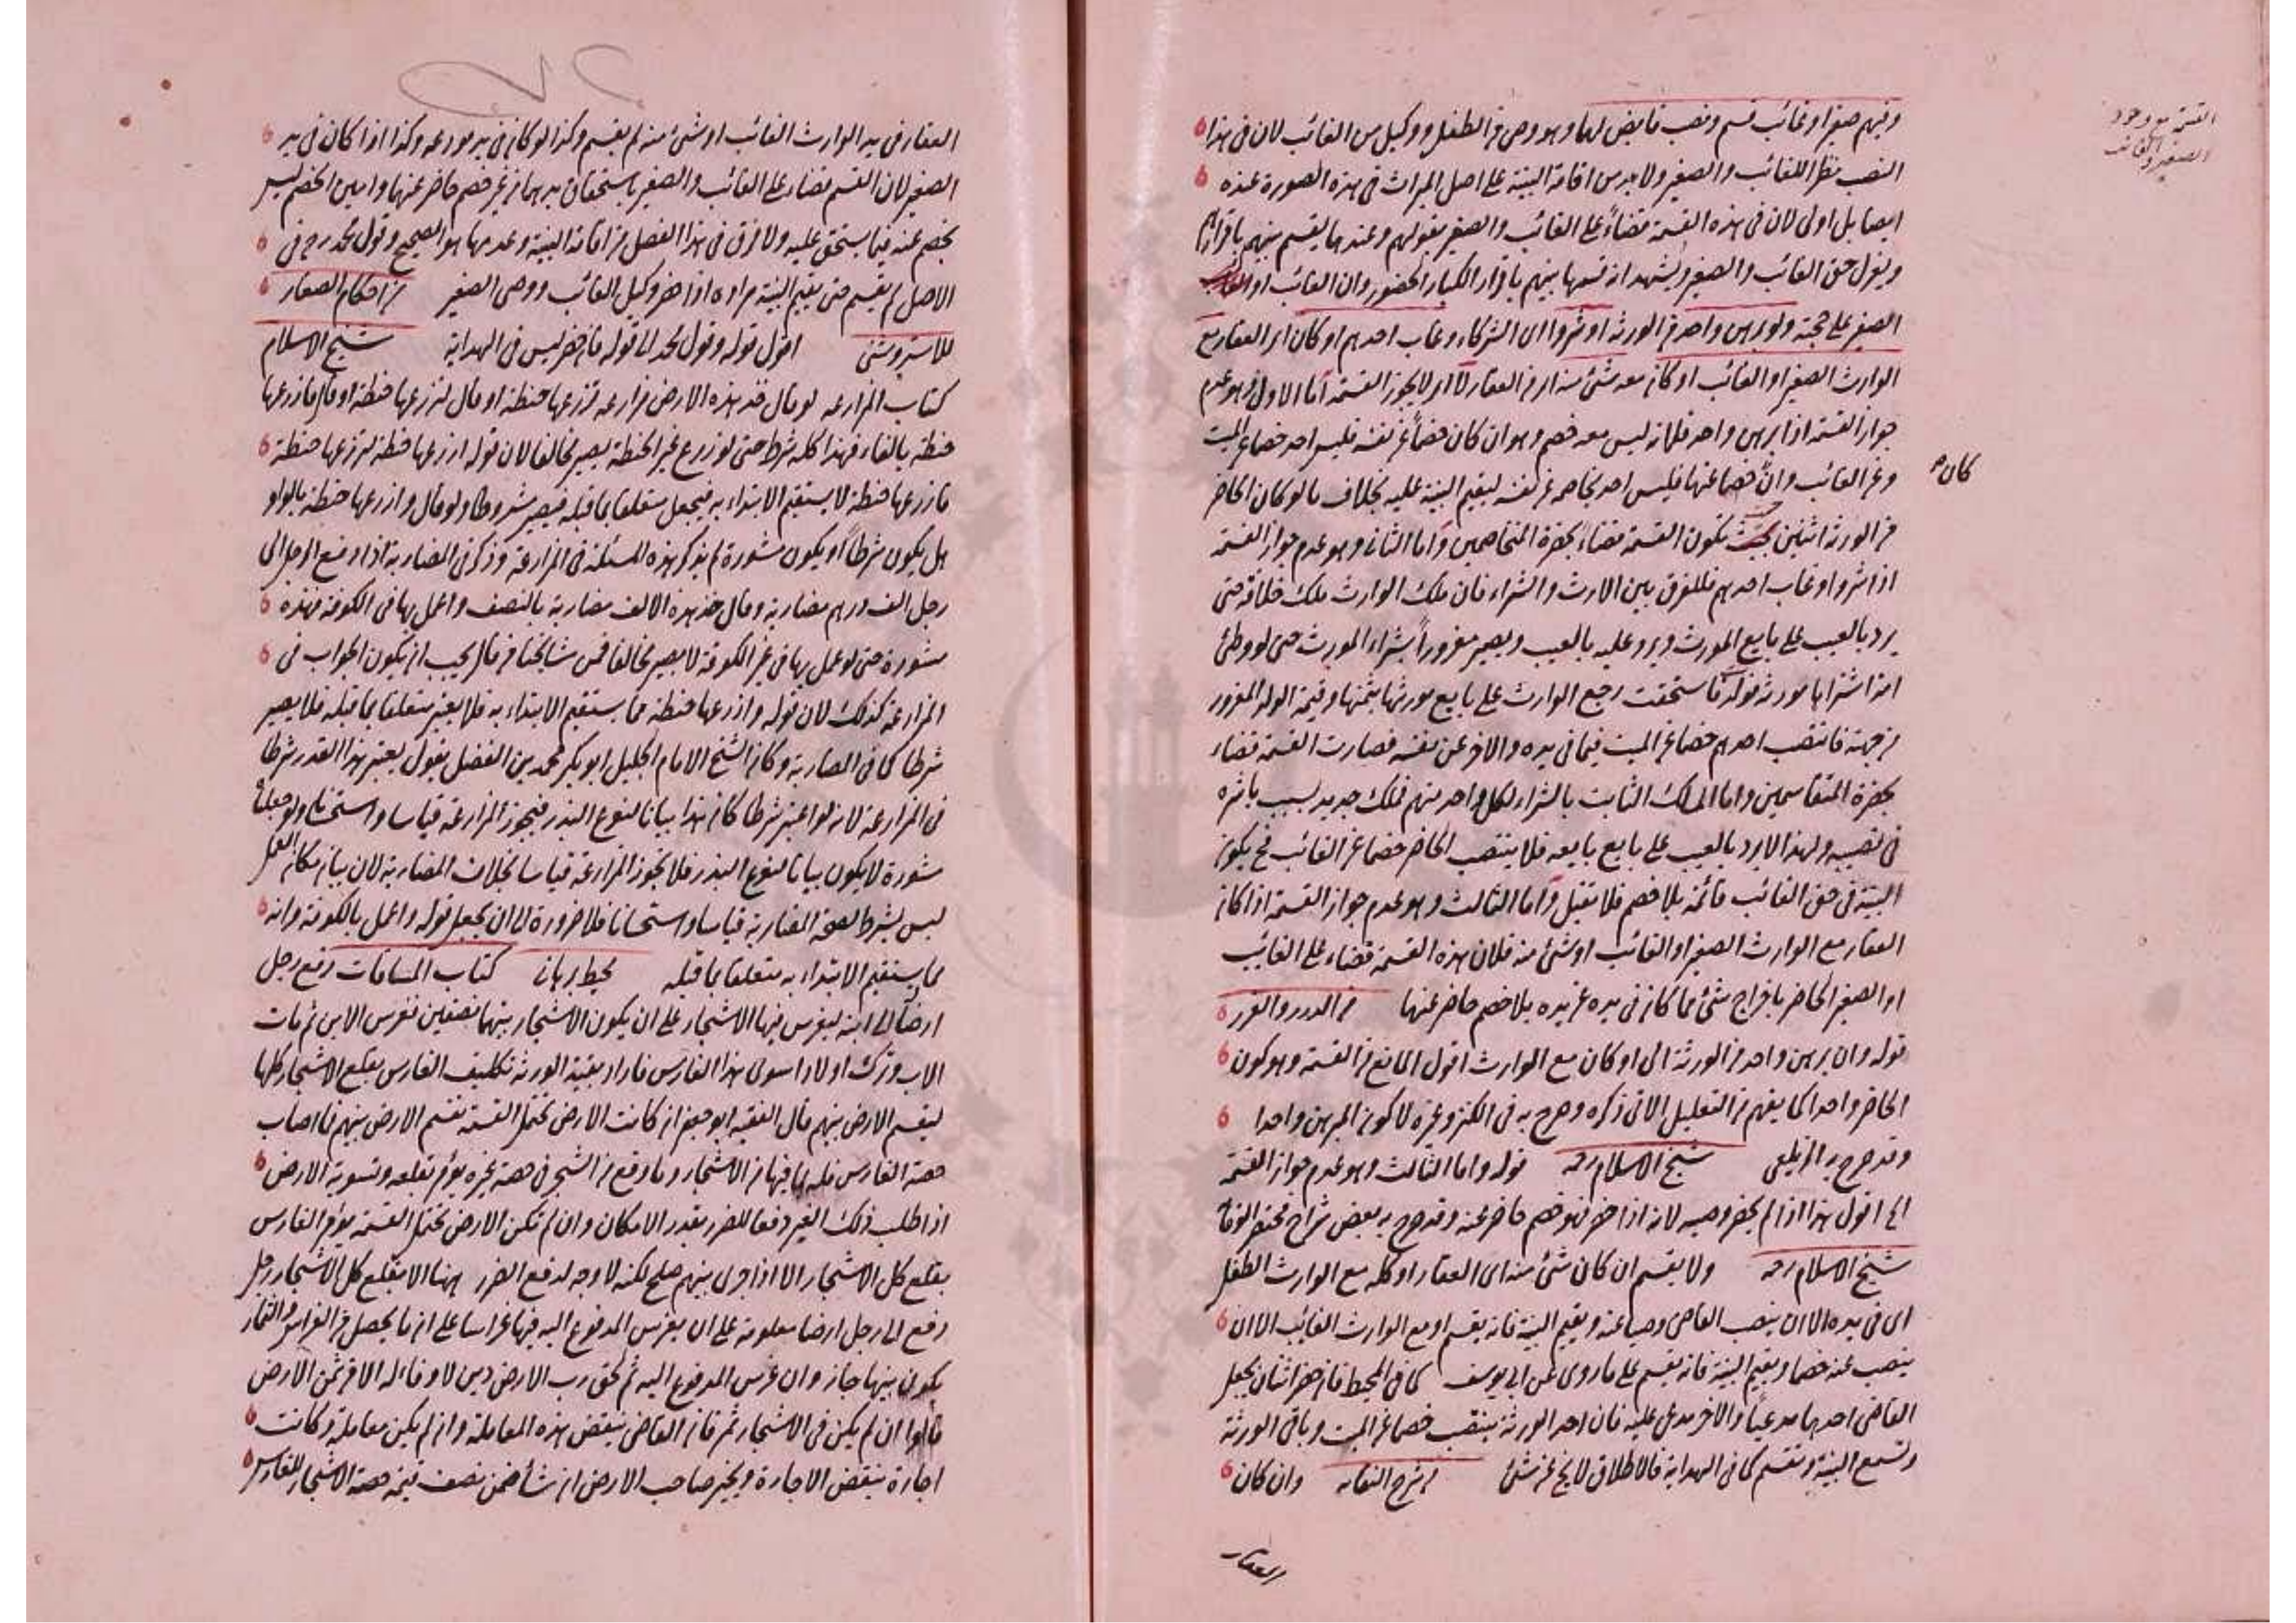 القسمة مع وجود
الصغير والغائب
وفيهم صغير او غائب قسم ونصب قابض لهما وهو وصى عن الطفل ووكيل من الغائب لان فى هذا
النصب نظرا للغائب والصغير ولابد من اقامة البينة على اصل الميراث فى هذه الصورة عنده
ايضا بل اولى لان فى هذه القسمة قضاء على الغائب والصغير بقولهم وعندهما يقسم بينهم باقرارهم
ويعزل حق الغائب والصغير ويشهد انه قسمها بينهم باقرار الكبار الحضور وان الغائب او
الصغير على حجته ولو برهن واحد من الورثة او شروا اى الشركاء وغاب احدهم او كان اى العقار مع
الوارث الصغير او الغائب او كان معه شئ منه اى من العقار لا اى لا يجوز القسمة اما الاول وهو عدم
جواز القسمة اذا برهن واحد فلانه ليس معه خصم وهو ان كان خصما عن نفسه فليس احد خصما عن الميت
كان
وعن الغائب وان خصما عنهما فليس احد يخاصمه عن نفسه ليقيم البينة عليه بخلاف ما لو كان الحاضر
من الورثة اثنين حيث تكون القسمة قضاء بحضرة المتخاصمين واما الثانى وهو عدم جواز القسمة
اذا شروا وغاب احدهم فللفرق بين الارث والشراء فان ملك الوارث ملك خلافة حتى
يرد بالعيب على بايع المورث ويرد عليه بالعيب ويصير مغرورا بشراء المورث حتى لو وطئ
امة اشتراها مورثه فولدت فاستحقت رجع الوارث على بايع مورثها بثمنها وقيمة الولد المغرور
من جهته فانتصب احدهم خصما عن الميت فيما فى يده والاخر عن نفسه فصارت القسمة قضاء
بحضرة المتقاسمين واما الملك الثابت بالشراء لكل واحد منهم فملك جديد بسبب باشره
فى نصيبه ولهذا لا يرد بالعيب على بايع بايعه فلا ينتصب الحاضر خصما عن الغائب فح يكون
البينة فى حق الغائب قائمة بلا خصم فلا تقبل واما الثالث وهو عدم جواز القسمة اذا كان
العقار مع الوارث الصغير او الغائب او شئ منه فلان هذه القسمة قضاء على الغائب
او الصغير الحاضر باخراج شئ مما كان فى يده عن يده بلا خصم حاضر عنهما من الدرر والغرر
قوله وان برهن واحد من الورثة الى او كان مع الوارث اقول المانع من القسمة وهو كون
الحاضر واحدا كما يفهم من التعليل الاتى ذكره وصرح به فى الكنز وغيره لا كون المبرهن واحدا
وقد صرح به الزيلعى شيخ الاسلام رحمه قوله واما الثالث وهو عدم جواز القسمة
الخ اقول هذا اذا لم يحضر وصيه لانه اذا حضر فهو خصم حاضر عنه وقد صرح به بعض شراح مختصر الوقاية
شيخ الاسلام رحمه ولا يقسم ان كان شئ منه اى العقار او كله مع الوارث الطفل
اى فى يده الا ان ينصب القاضى وصيا عنه ويقيم البينة فانه يقسم او مع الوارث الغائب الا ان
ينصب عنه خصما ويقيم البينة فانه يقسم على ما روى عن ابى يوسف كما فى المحيط فان حضر اثنان يجعل
القاضى احدهما مدعيا والاخر مدعى عليه فان احد الورثة ينتصب خصما عن الميت وباقى الورثة
وتسمع البينة وتقسم كما فى الهداية فالاطلاق لا يخ عن شئ من شرح النقايه وان كان
العقار
العقار فى يد الوارث الغائب او شئ منه لم يقسم وكذا لو كان فى يد مودعه وكذا اذا كان فى يد
الصغير لان القسم قضاء على الغائب والصغير باستحقاق يدهما من غير خصم حاضر عنهما وامين الخصم ليس
بخصم عنه فيما يستحق عليه ولا فرق فى هذا الفصل من اقامة البينة وعدمها هو الصحيح وقول محمد رح فى
الاصل لم يقسم حتى يقيم البينة مراده اذا حضر وكيل الغائب ووصى الصغير من احكام الصغار
للاستروشنى اقول قوله وقول محمد الى قوله فان حضر ليس فى الهداية شيخ الاسلام
كتاب المزارعة لو قال خذ هذه الارض مزارعة تزرعها حنطة او قال لتزرعها حنطة او قال فازرعها
حنطة بالفاء فهذا كله شرط حتى لو زرع غير الحنطة يصير مخالفا لان قوله ازرعها حنطة لتزرعها حنطة
فازرعها حنطة لا يستقيم الابتداء به فيجعل متعلقا بما قبله فيصير مشروطا ولو قال وازرعها حنطة بالواو
هل يكون شرطا او يكون مشورة لم يذكر هذه المسئلة فى المزارعة وذكر فى المضاربة اذا دفع الرجل الى
رجل الف درهم مضاربة وقال خذ هذه الالف مضاربة بالنصف واعمل بها فى الكوفة فهذه
مشورة حتى لو عمل بها فى غير الكوفة لا يصير مخالفا فمن مشايخنا من قال يجب ان يكون الجواب فى
المزارعة كذلك لان قوله وازرعها حنطة مما يستقيم الابتداء به فلا يعتبر متعلقا بما قبله فلا يصير
شرطا كما فى المضاربة وكان الشيخ الامام الجليل ابو بكر محمد بن الفضل يقول يعتبر هذا القدر شرطا
فى المزارعة لانه لو اعتبر شرطا كان هذا بيانا لنوع البذر فيجوز المزارعة قياسا واستحسانا ولو جعلناه
مشورة لا يكون بيانا لنوع البذر فلا تجوز المزارعة قياسا بخلاف المضاربة لان بيان مكان العمل
ليس بشرط لصحة المضاربة قياسا واستحسانا فلا ضرورة الى ان يجعل قوله واعمل بالكوفة وانه
مما يستقيم الابتداء به متعلقا بما قبله محيط برهانى كتاب المساقات دفع رجل
ارضا الى ابنه ليغرس فيها الاشجار على ان يكون الاشجار بينهما نصفين فغرس الابن ثم مات
الاب وترك اولادا سوى هذا الغارس فاراد بقية الورثة تكليف الغارس بقلع الاشجار كلها
ليقسم الارض بينهم قال الفقيه ابو جعفر ان كانت الارض تحتمل القسمة تقسم الارض بينهم فما اصاب
حصة الغارس فله ما فيها من الاشجار وما وقع من الشجر فى حصة غيره يؤمر بقلعه وتسوية الارض
اذا طلب ذلك الغير دفعا للضرر بقدر الامكان وان لم تكن الارض تحتمل القسمة يؤمر الغارس
بقلع كل الاشجار الا اذا جرى بينهم صلح لكنه لا وجه لدفع الضرر ههنا الا بقلع كل الاشجار رجل
دفع الى رجل ارضا معلومة على ان يغرس المدفوع اليه فيها غراسا على ان ما يحصل من الغراس والثمار
يكون بينهما جاز وان غرس المدفوع اليه ثم لحق رب الارض دين لا وفاء له الا من ثمن الارض
قالوا ان لم يكن فى الاشجار ثمر فان القاضى ينقض هذه المعاملة وان لم يكن معاملة وكانت
اجارة ينقض الاجارة ويخير صاحب الارض ان شاء ضمن نصف قيمة حصة الاشجار للغارس